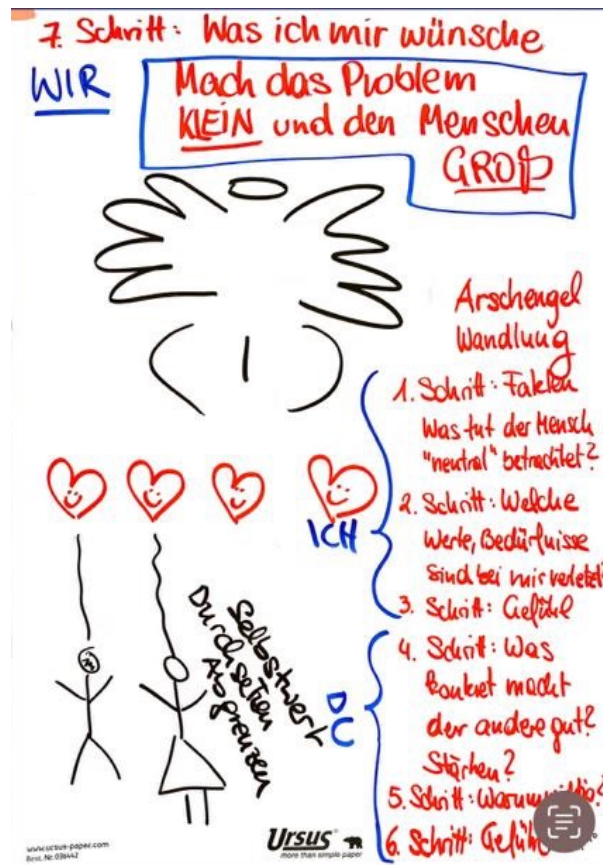 7. Schritt: Was ich mir wünsche
WIR
Mach das Problem
KLEIN und den Menschen
GROß
Arschengel
Wandlung
1. Schritt: Fakten
Was tut der Mensch
"neutral" betrachtet?
2. Schritt: Welche
Werte, Bedürfnisse
sind bei mir verletzt?
3. Schritt: Gefühl
ICH
4. Schritt: Was
konkret macht
der andere gut?
Stärken?
5. Schritt:
6. Schritt:
DU
Selbstwert
Durchsetzen
Abgrenzen
www.ursus-paper.com
Best. Nr. 036442
Ursus
more than simple paper